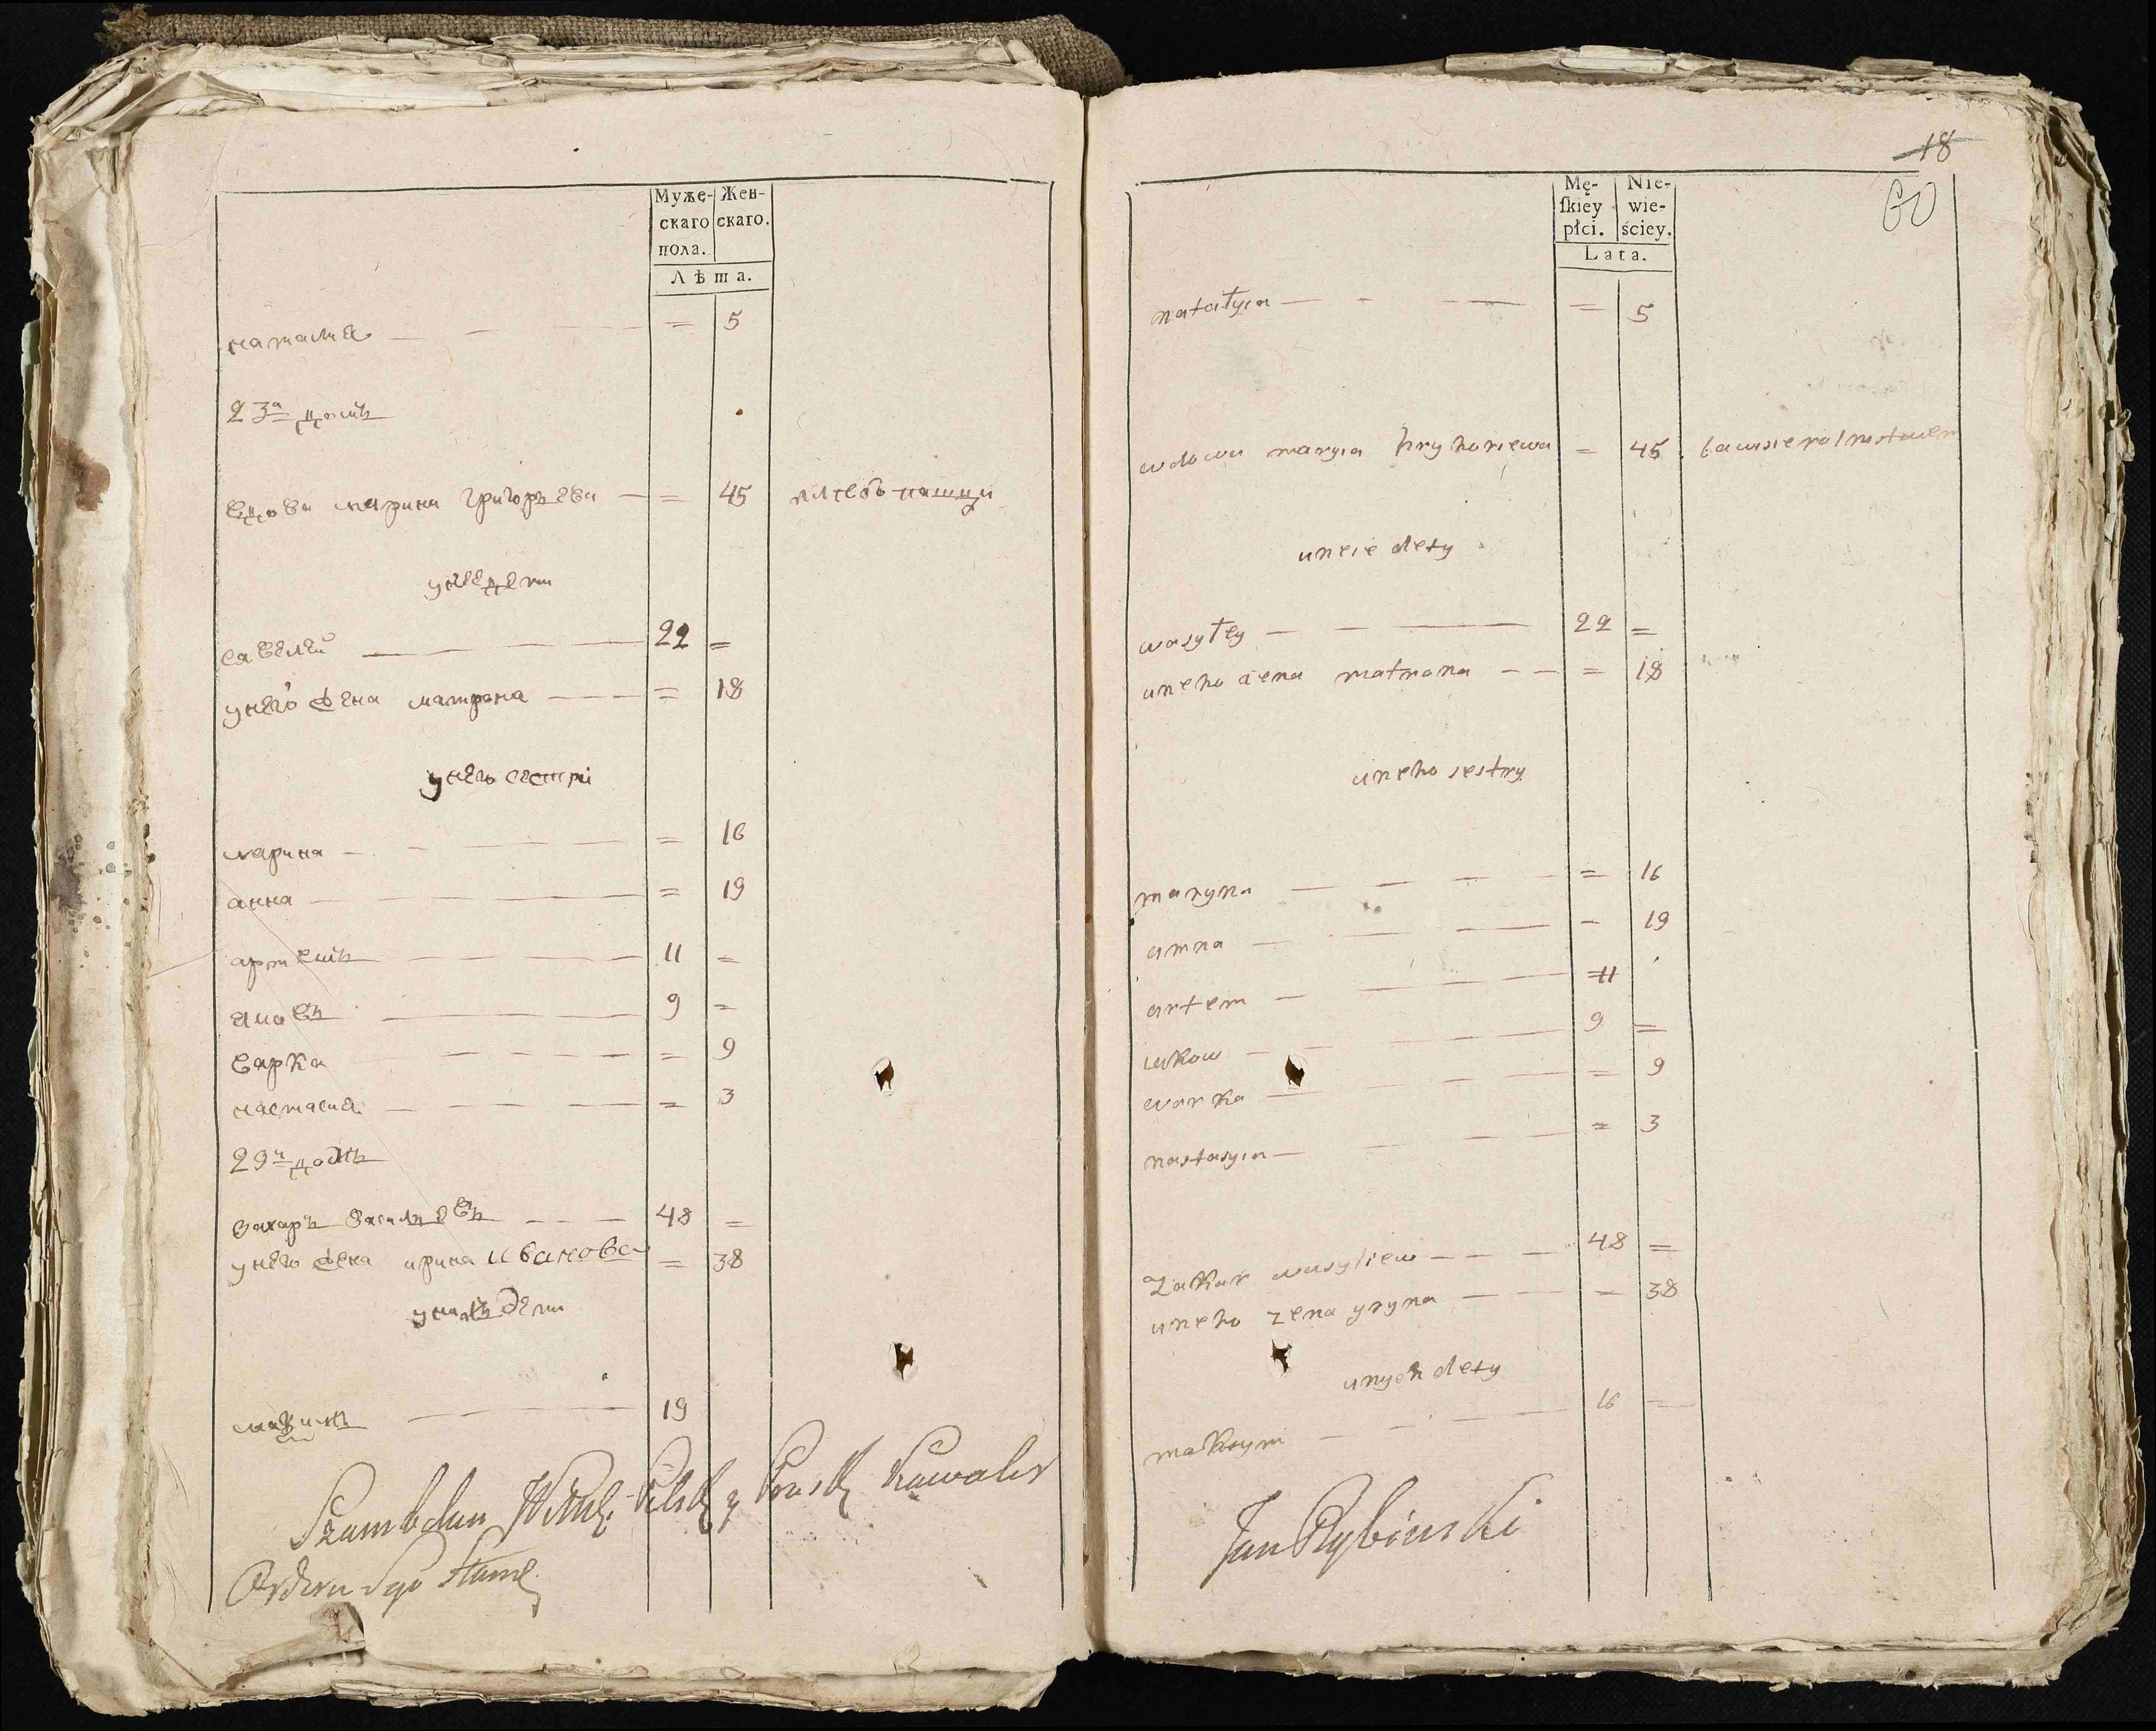 Муже-
скаго
пола.
Жен-
скаго.
Лѣта.
наталия — = 5
23а домъ
вдова марина григорьева — = 45
унее дети
савелей — 22 =
унего жена матрона — = 18
унего сестри
марина — = 16
анна — = 19
артемъ — 11 =
яковъ — 9 =
варка — = 9
настасия — = 3
29и домъ
захаръ васильевъ — 48 =
унего жена ирина иванова = 38
унихъ дети
19
Szambelan
Kawaler
Orderu Sgo Stanı.
18
60
Mę-
ſkiey
płci.
Nie-
wie-
ściey.
Lata.
natałyia — = 5
wdowa maryia hryhoriewa = 45
uneie dety
wasyłey — 22 =
uneho żena matrona — = 18
uneho sestry
maryna — = 16
amna — = 19
artem — 11
iakow — 9 =
warka — = 9
nastasyia — = 3
zakar wasyliew — 48 =
uneho zena yryna — = 38
unych dety
maksym — 16 =
Jan Rybinski